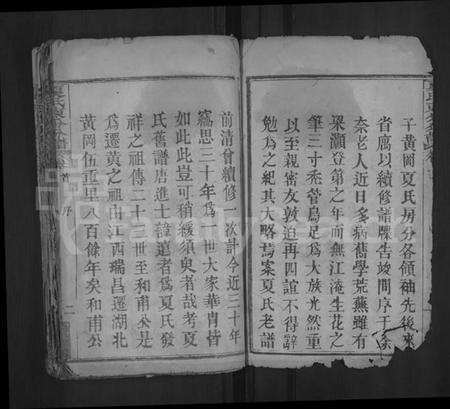 子黃岡夏氏房分各領袖先後來
省席以續修譜牒告竣問序于余
奈老人近日多病舊學荒蕪雖有
梁灝登第之年而無江淹生花之
筆三寸禿管烏足為大放光然重
以至親密友敦迫再四誼不得辭
勉為之紀其大略焉案夏氏老譜
前清曾續修一次計今近三十年
竊思三十年為一世大家華胄皆
如此此豈可稍緩須臾者哉考夏
氏舊譜唐進士諱道者為夏氏發
祥之祖傳二十一世至和甫公是
為遷黃之祖由江西瑞昌遷湖北
黃岡伍重里八百餘年矣和甫公
首 序
二